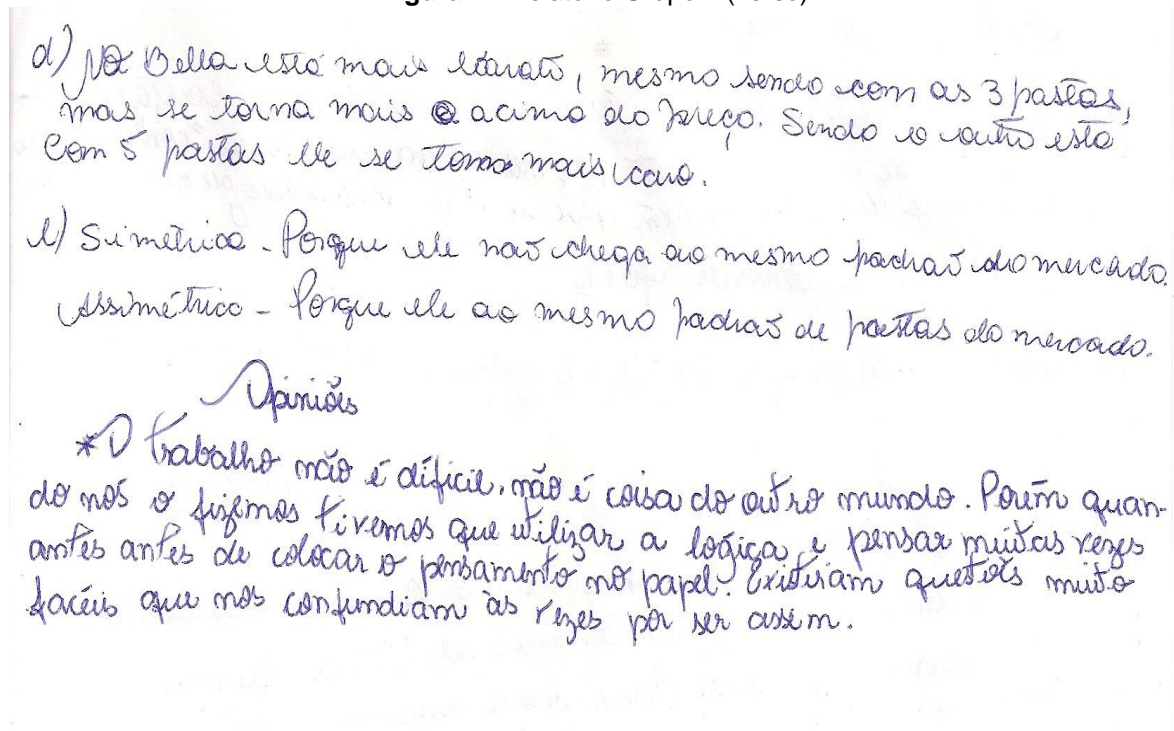 d) Na Bella está mais barato, mesmo sendo com as 3 pastas,
mas se torna mais acima do preço. Sendo o outro está
Com 5 pastas ele se torna mais caro.
e) Simétrico - Porque ele não chega ao mesmo padrão do mercado.
Assimétrico - Porque ele ao mesmo padrão de pastas do mercado.
Opiniões
*O trabalho não é díficil, não é coisa do outro mundo. Porém quan-
do nós o fizemos tivemos que utilizar a lógica e pensar muitas vezes
antes antes de colocar o pensamento no papel. Existiram questões muito
facéis que nos confundiam às vezes por ser assim.